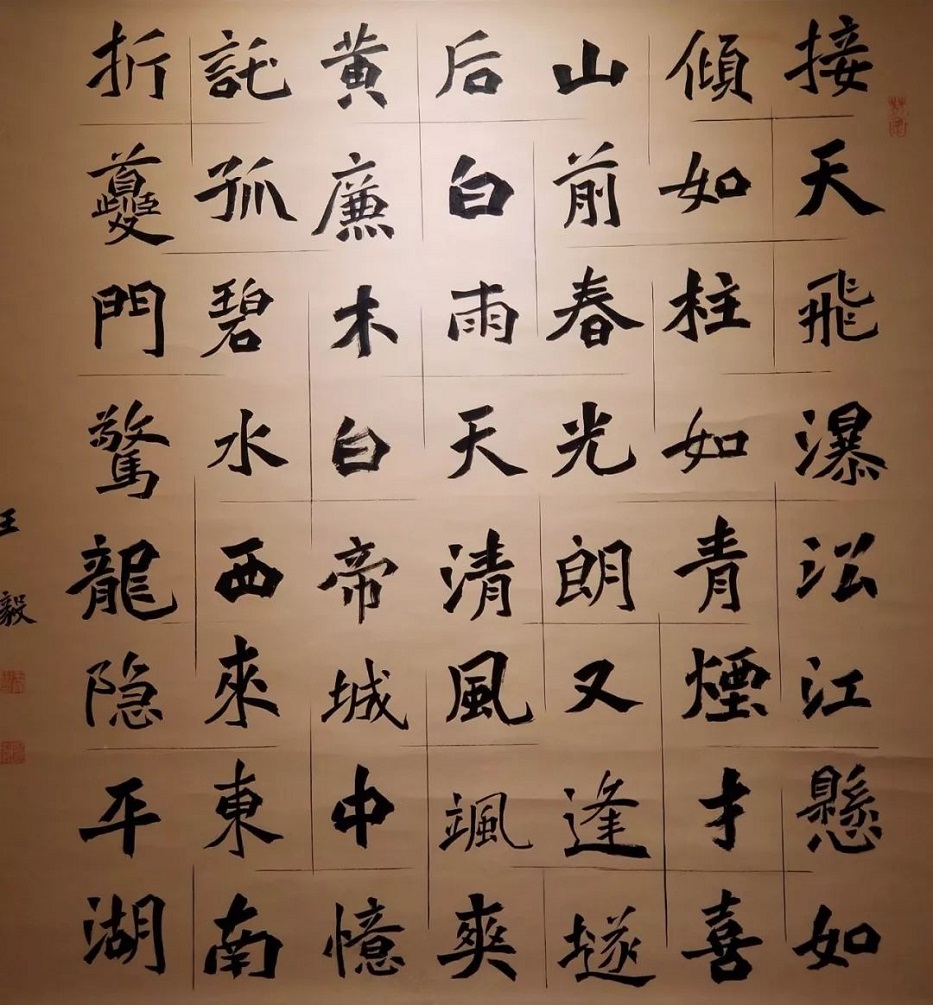 接天飛瀑㳂江懸如
傾如柱如青煙才喜
山前春光朗又逢
后白雨天清風颯爽
黄廉木白帝城中憶
託孤碧水西來東南
折夔門驚龍隐平湖
王毅